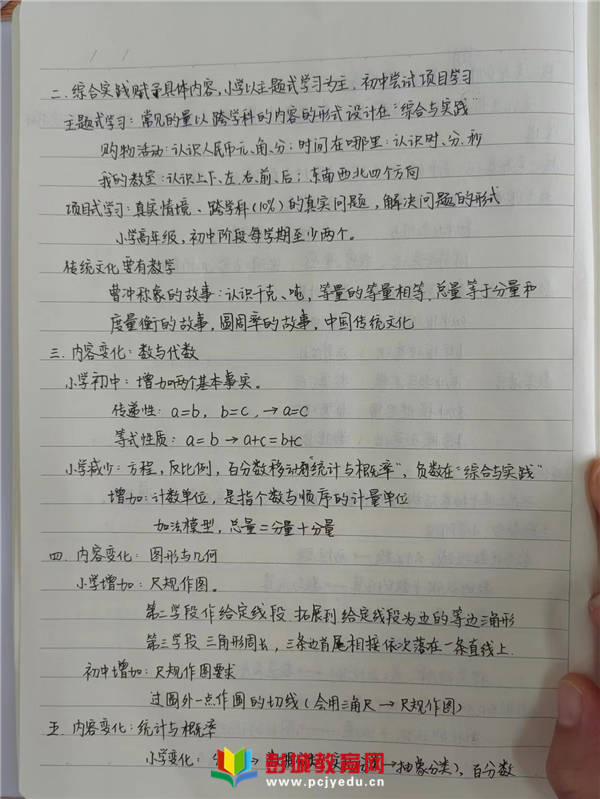 二、综合实践赋予具体内容,小学以主题式学习为主,初中尝试项目学习
主题式学习:常见的量以跨学科的内容的形式设计在“综合与实践”
购物活动:认识人民币元、角、分;时间在哪里:认识时、分、秒
我的教室:认识上下、左右、前、后;东南西北四个方向
项目式学习:真实情境、跨学科(10%)的真实问题,解决问题的形式
小学高年级,初中阶段每学期至少两个。
传统文化要有教学
曹冲称象的故事:认识千克、吨,等量的等量相等,总量等于分量和
度量衡的故事,圆周率的故事,中国传统文化
三、内容变化:数与代数
小学初中:增加两个基本事实。
传递性:a=b, b=c, →a=c
等式性质:a=b→a+c=b+c
小学减少:方程,反比例,百分数移动到“统计与概率”,负数在“综合与实践”
增加:计数单位,是指个数与顺序的计量单位
加法模型,总量=分量+分量
四、内容变化:图形与几何
小学增加:尺规作图。
第二学段作给定线段 拓展到给定线段为边的等边三角形
第三学段 三角形周长,三条边首尾相接依次落在一条直线上.
初中增加:尺规作图要求
过圆外一点作圆的切线(会用三角尺→尺规作图)
五、内容变化:统计与概率
小学变化: → →抽象分类),百分数
彭城教育网
www.pcjyedu.cn